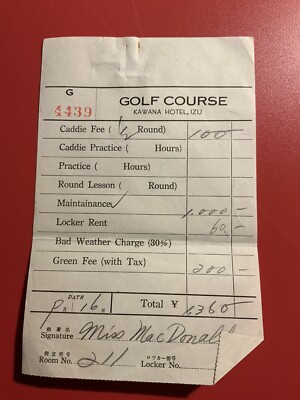 G
4439
GOLF COURSE
KAWANA HOTEL, IZU
Caddie Fee ( 1/2 Round) 100-
Caddie Practice ( Hours)
Practice ( Hours)
Round Lesson ( Round)
Maintainance ✓ 1.000-
Locker Rent 60-
Bad Weather Charge (30%)
Green Fee (with Tax) 200-
DATE 16 Total ¥ 1360-
御署名
Signature Miss MacDonald
御室番号 ロツカー番号
Room No. 211 Locker No.